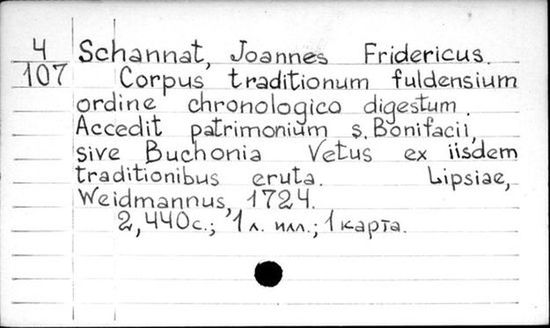 4
107
Schannat, Joannes Fridericus.
Corpus traditionum fuldensium
ordine chronologico digestum.
Accedit patrimonium s. Bonifacii,
sive Buchonia Vetus ex iisdem
traditionibus eruta. Lipsiae,
Weidmannus, 1724.
2,440с.; 1 л. илл.; 1 карта.